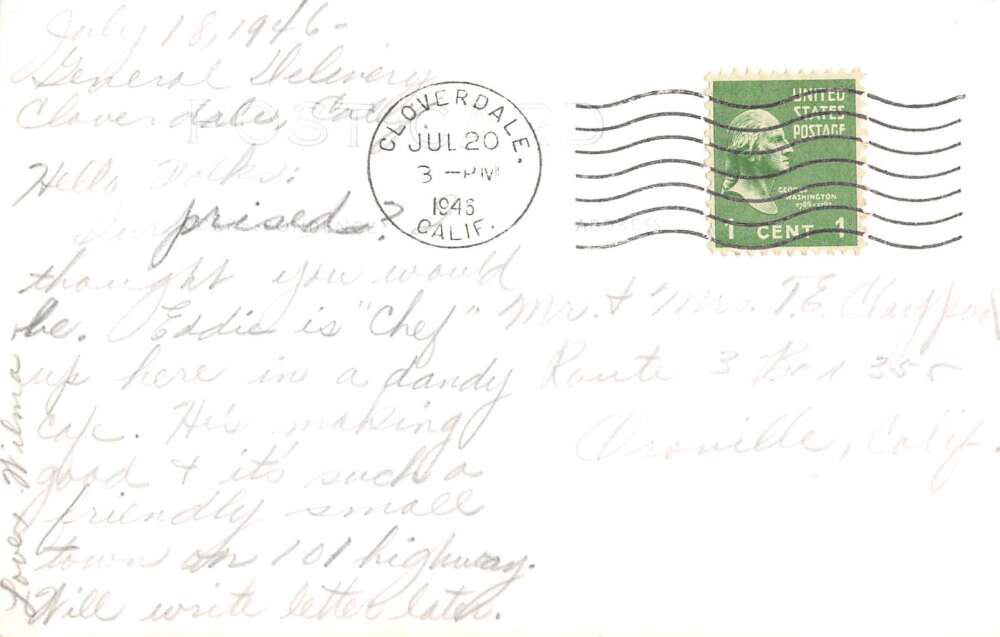 July 18, 1946-
General Delivery
Cloverdale, Cal
POST CARD
Hello Folks:
Surprised? I
thought you would
be. Eddie is "Chef"
up here in a dandy
cafe. He's making
good & it's such a
friendly small
town on 101 highway.
Will write letter later.
Love Wilma
CLOVERDALE,
JUL 20
3 -PM
1946
CALIF.
UNITED
STATES
POSTAGE
GEORGE
WASHINGTON
1789-1797
1 CENT 1
ADDRESS
Mr. & Mrs. T.E.
Route 3 Box 355
Oroville, Calif.